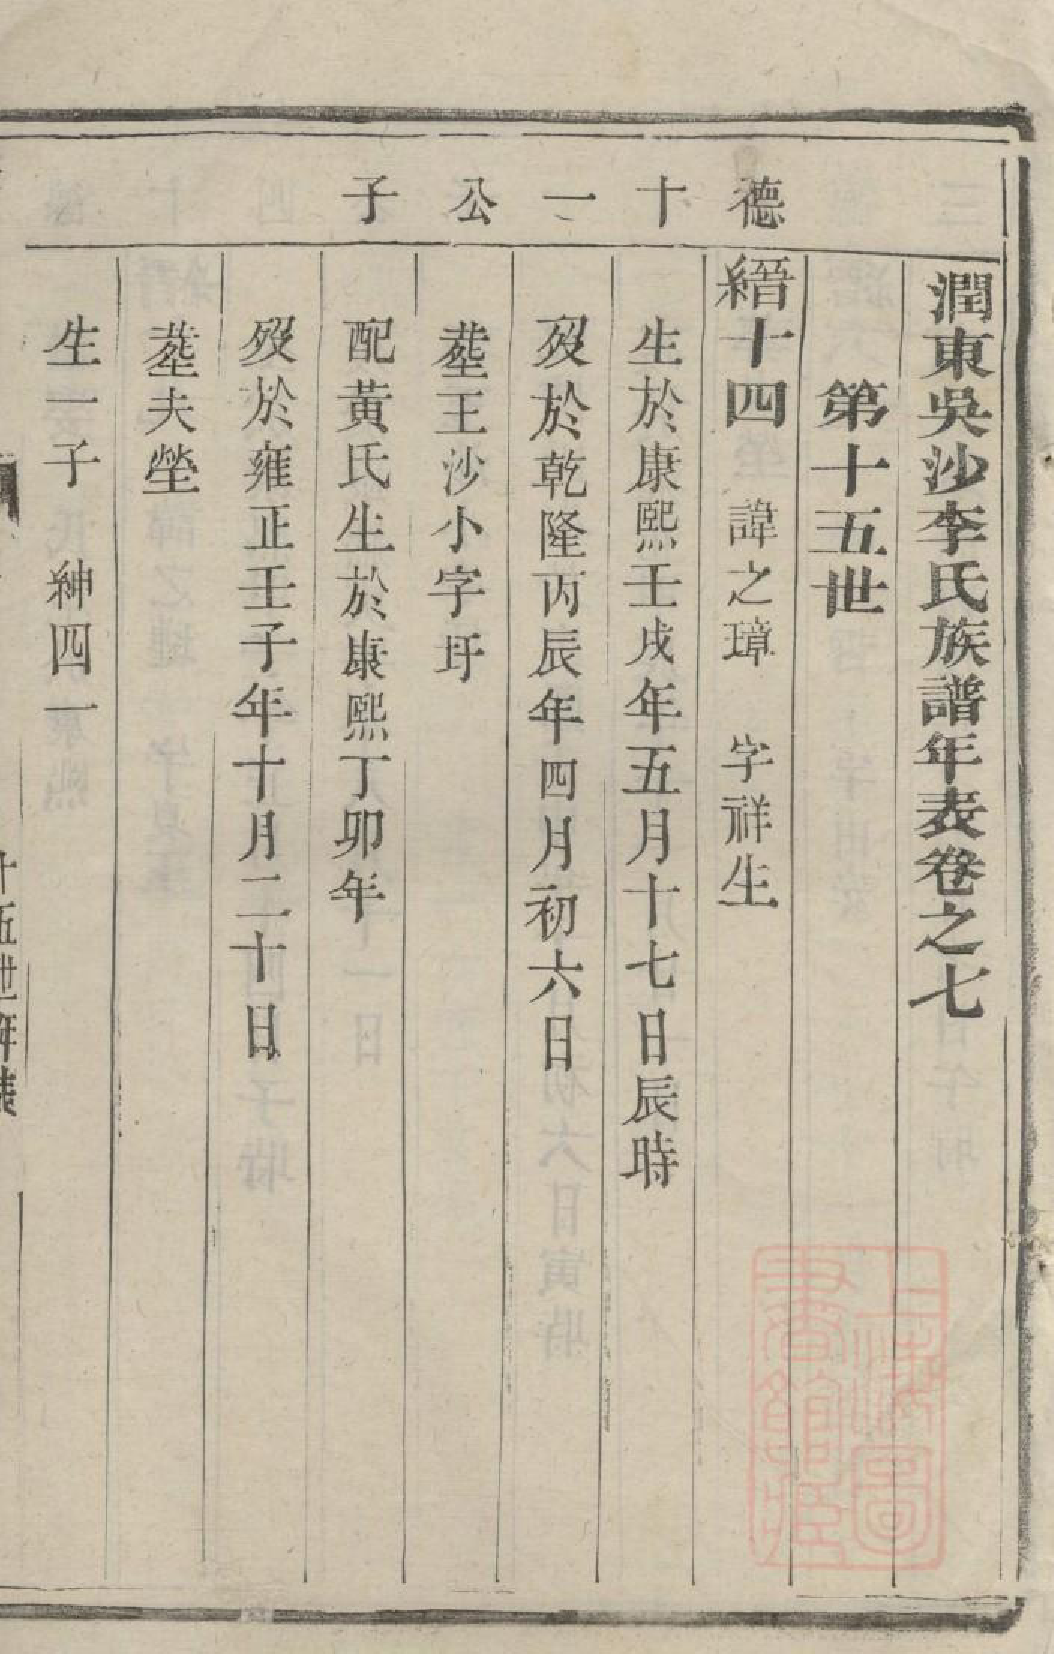 潤東吳沙李氏族譜年表卷之七
第十五世
德十一公子
縉十四 諱之璋 字祥生
生於康熙壬戌年五月十七日辰時
歿於乾隆丙辰年四月初六日
塟王沙小字圩
配黃氏生於康熙丁卯年
歿於雍正壬子年十月二十日
塟夫塋
生一子 紳四一
十五世年表
上海圖書館藏